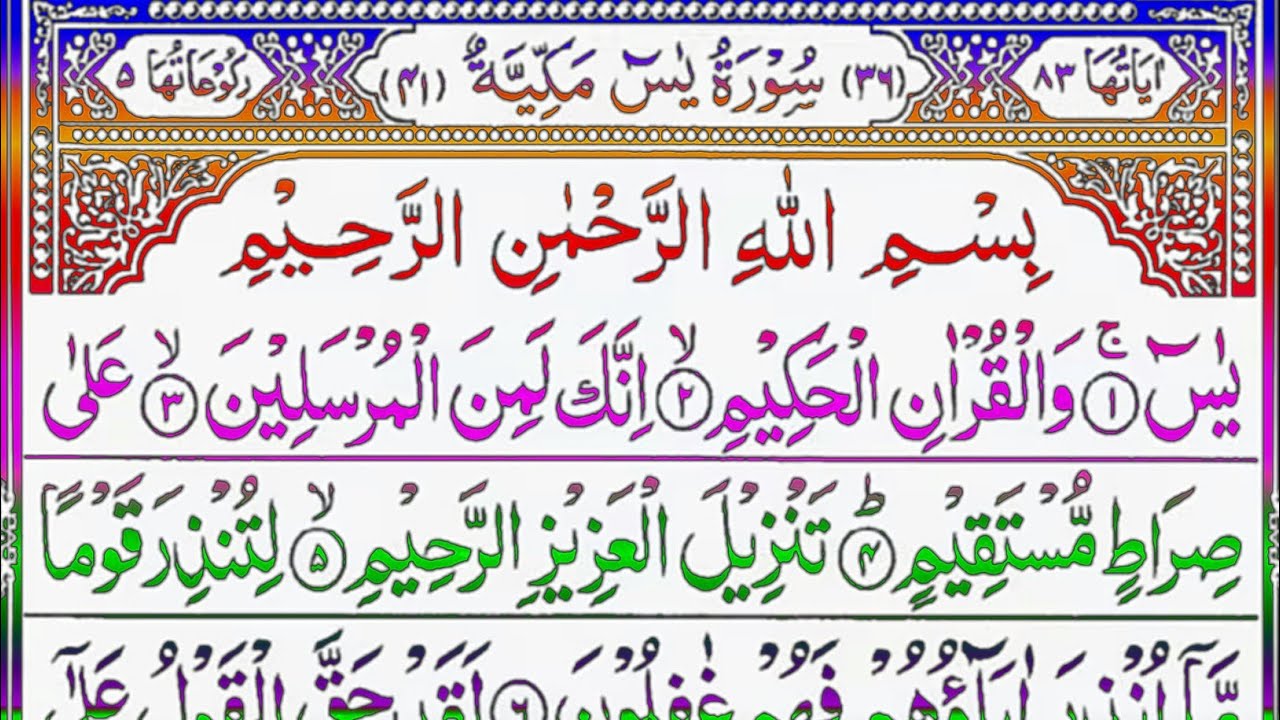 اٰیَاتُهَا ٨٣ (٣٦) سُوْرَةُ يٰسٓ مَكِّيَّةٌ (٤١) رُكُوْعَاتُهَا ٥
بِسْمِ اللّٰهِ الرَّحْمٰنِ الرَّحِيْمِ
يٰسٓ ۚ ﴿١﴾ وَالْقُرْاٰنِ الْحَكِيْمِ ۙ ﴿٢﴾ اِنَّكَ لَمِنَ الْمُرْسَلِيْنَ ۙ ﴿٣﴾ عَلٰى
صِرَاطٍ مُّسْتَقِيْمٍ ؕ ﴿٤﴾ تَنْزِيْلَ الْعَزِيْزِ الرَّحِيْمِ ۙ ﴿٥﴾ لِتُنْذِرَ قَوْمًا
مَّاۤ اُنْذِرَ اٰبَآؤُهُمْ فَهُمْ غٰفِلُوْنَ ﴿٦﴾ لَقَدْ حَقَّ الْقَوْلُ عَلٰٓى